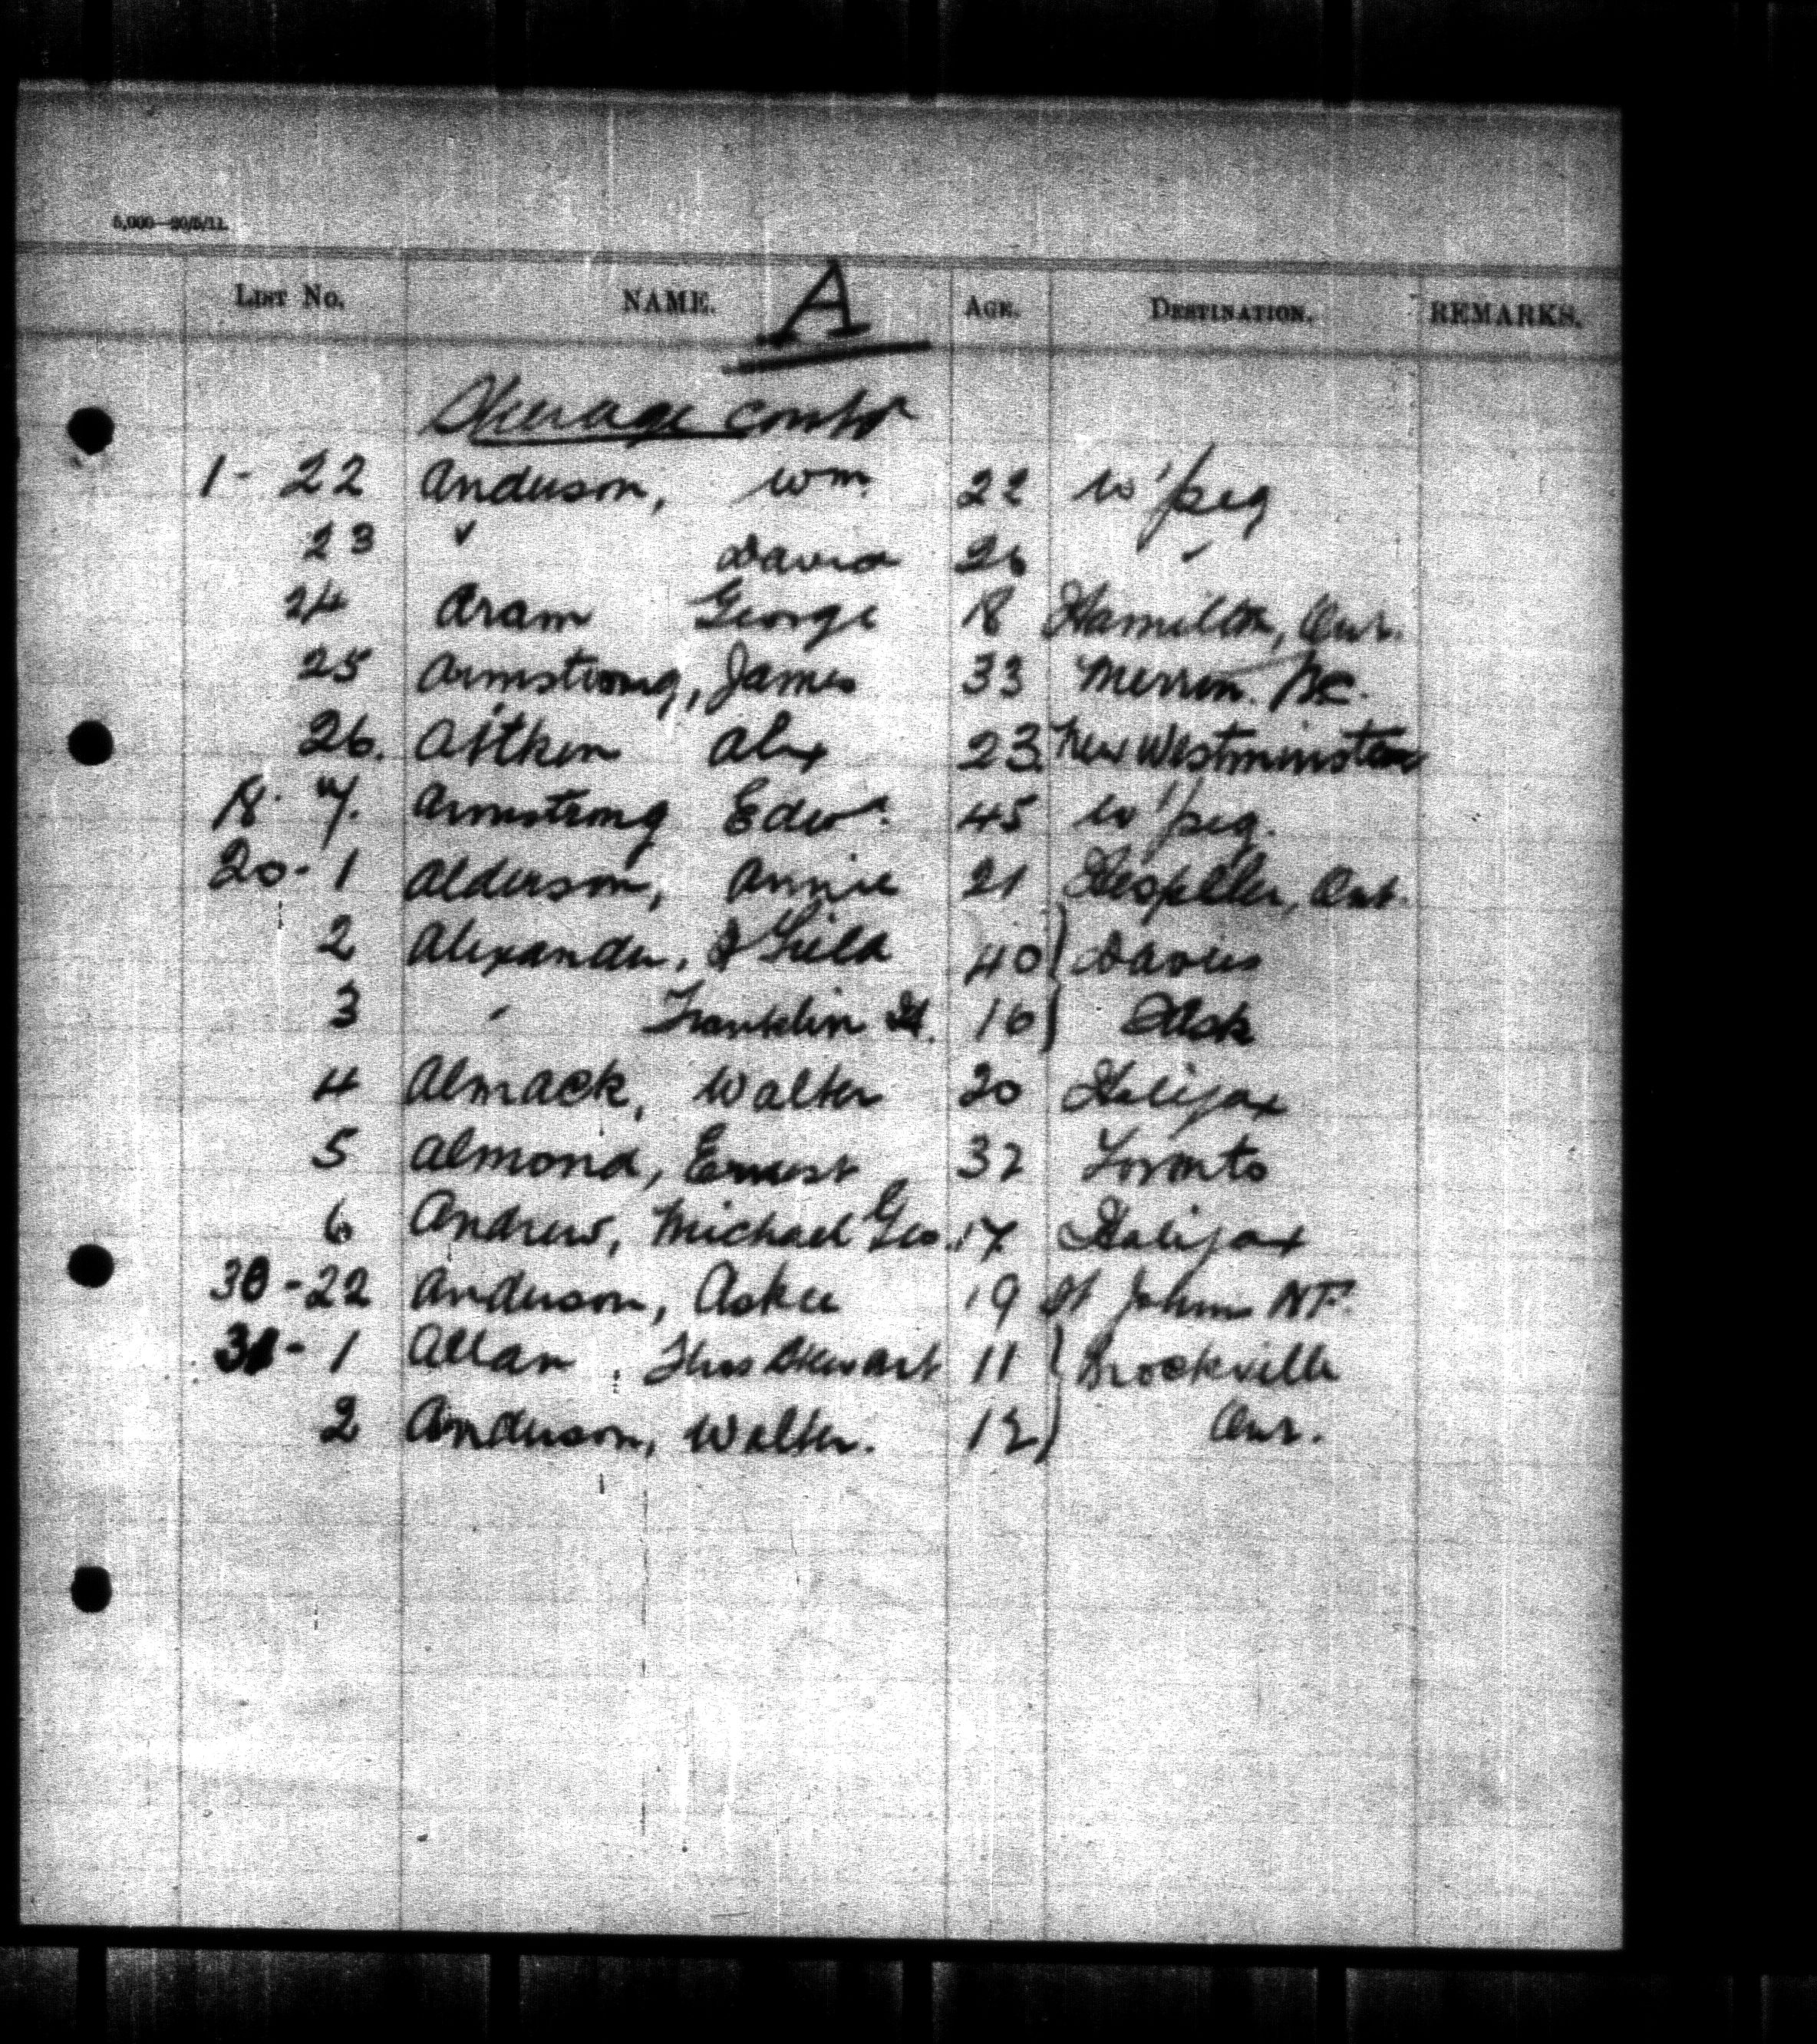 5,000—20/5/11.
LIST No. NAME. A AGE. DESTINATION. REMARKS.
Steerage contd
1 - 22 Anderson, Wm 22 W'peg
23 " David 26 "
24 Aram George 18 Hamilton, Ont.
25 Armstrong, James 33 B.C.
26. Aitken Alex 23. New Westminster
18. Armstrong Edwd. 45 W'peg.
20 - 1 Alderson, Annie 21 Hespeler, Ont.
2 Alexander, 40 } Davis
3 " Franklin 16 } Sask
4 Almack, Walter 20 Halifax
5 Almond, Ernest 32 Toronto
6 Andrew, Michael Geo. 17 Halifax
30 - 22 Anderson, 19 St Johns NF.
31 - 1 Allan, Thos Stewart 11 } Brockville
2 Anderson, Walter. 12 } Ont.